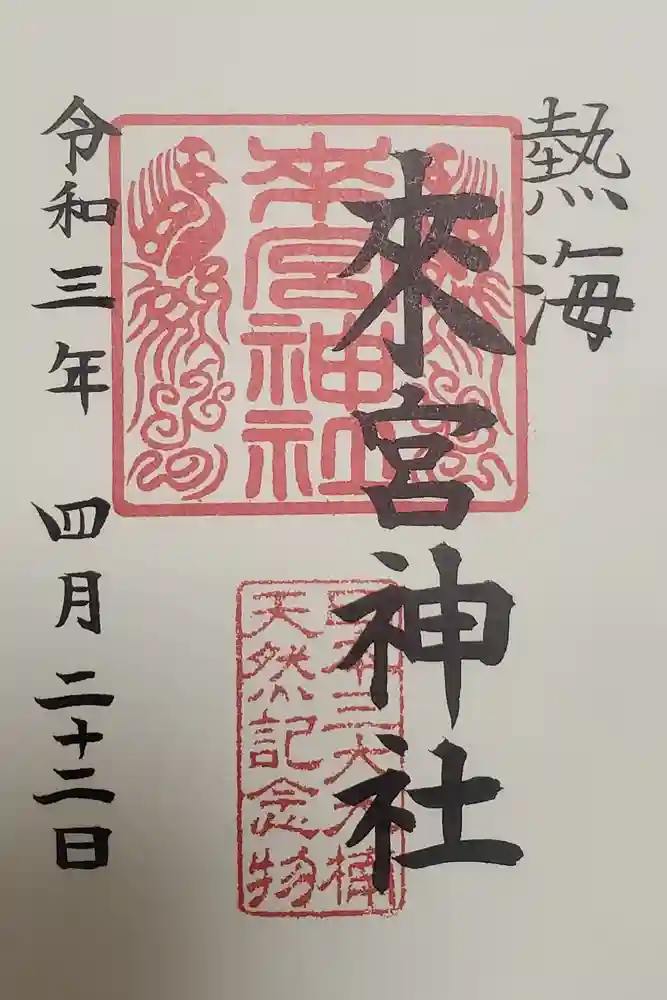 熱海
來宮神社
來宮神社
日本三大大楠
天然記念物
令和三年 四月二十二日